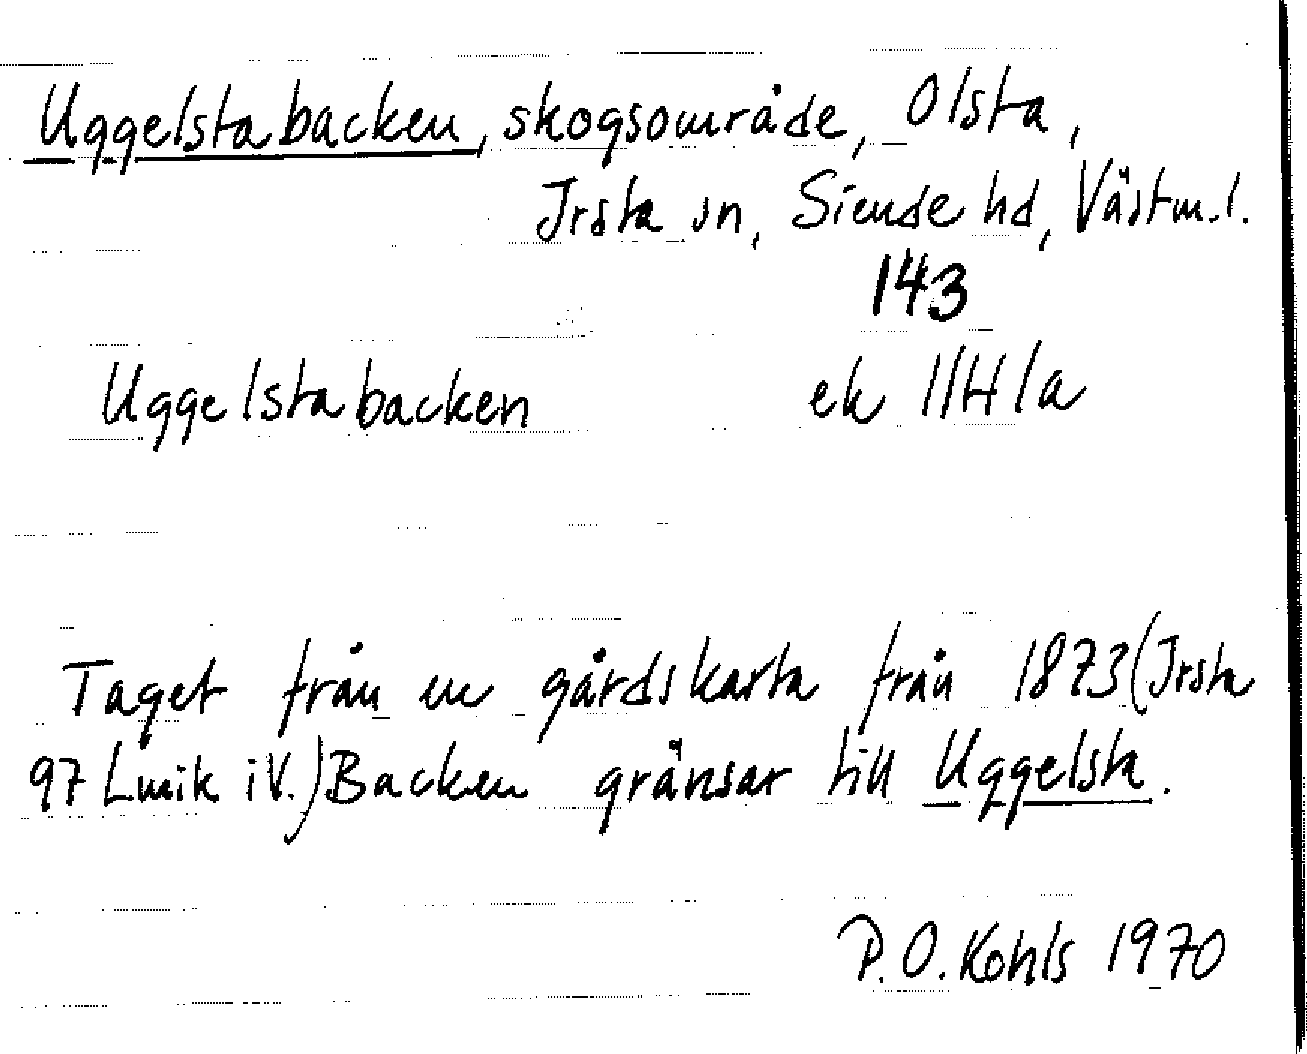 Uggelstabacken, skogsområde, Olsta,
Irsta sn, Siende hd, Västm.l.
143
Uggelstabacken ek 11H1a
Taget från en gårdskarta från 1873 (Irsta
97 Lmik i V.) Backen gränsar till Uggelsta.
P.O. Kohls 1970